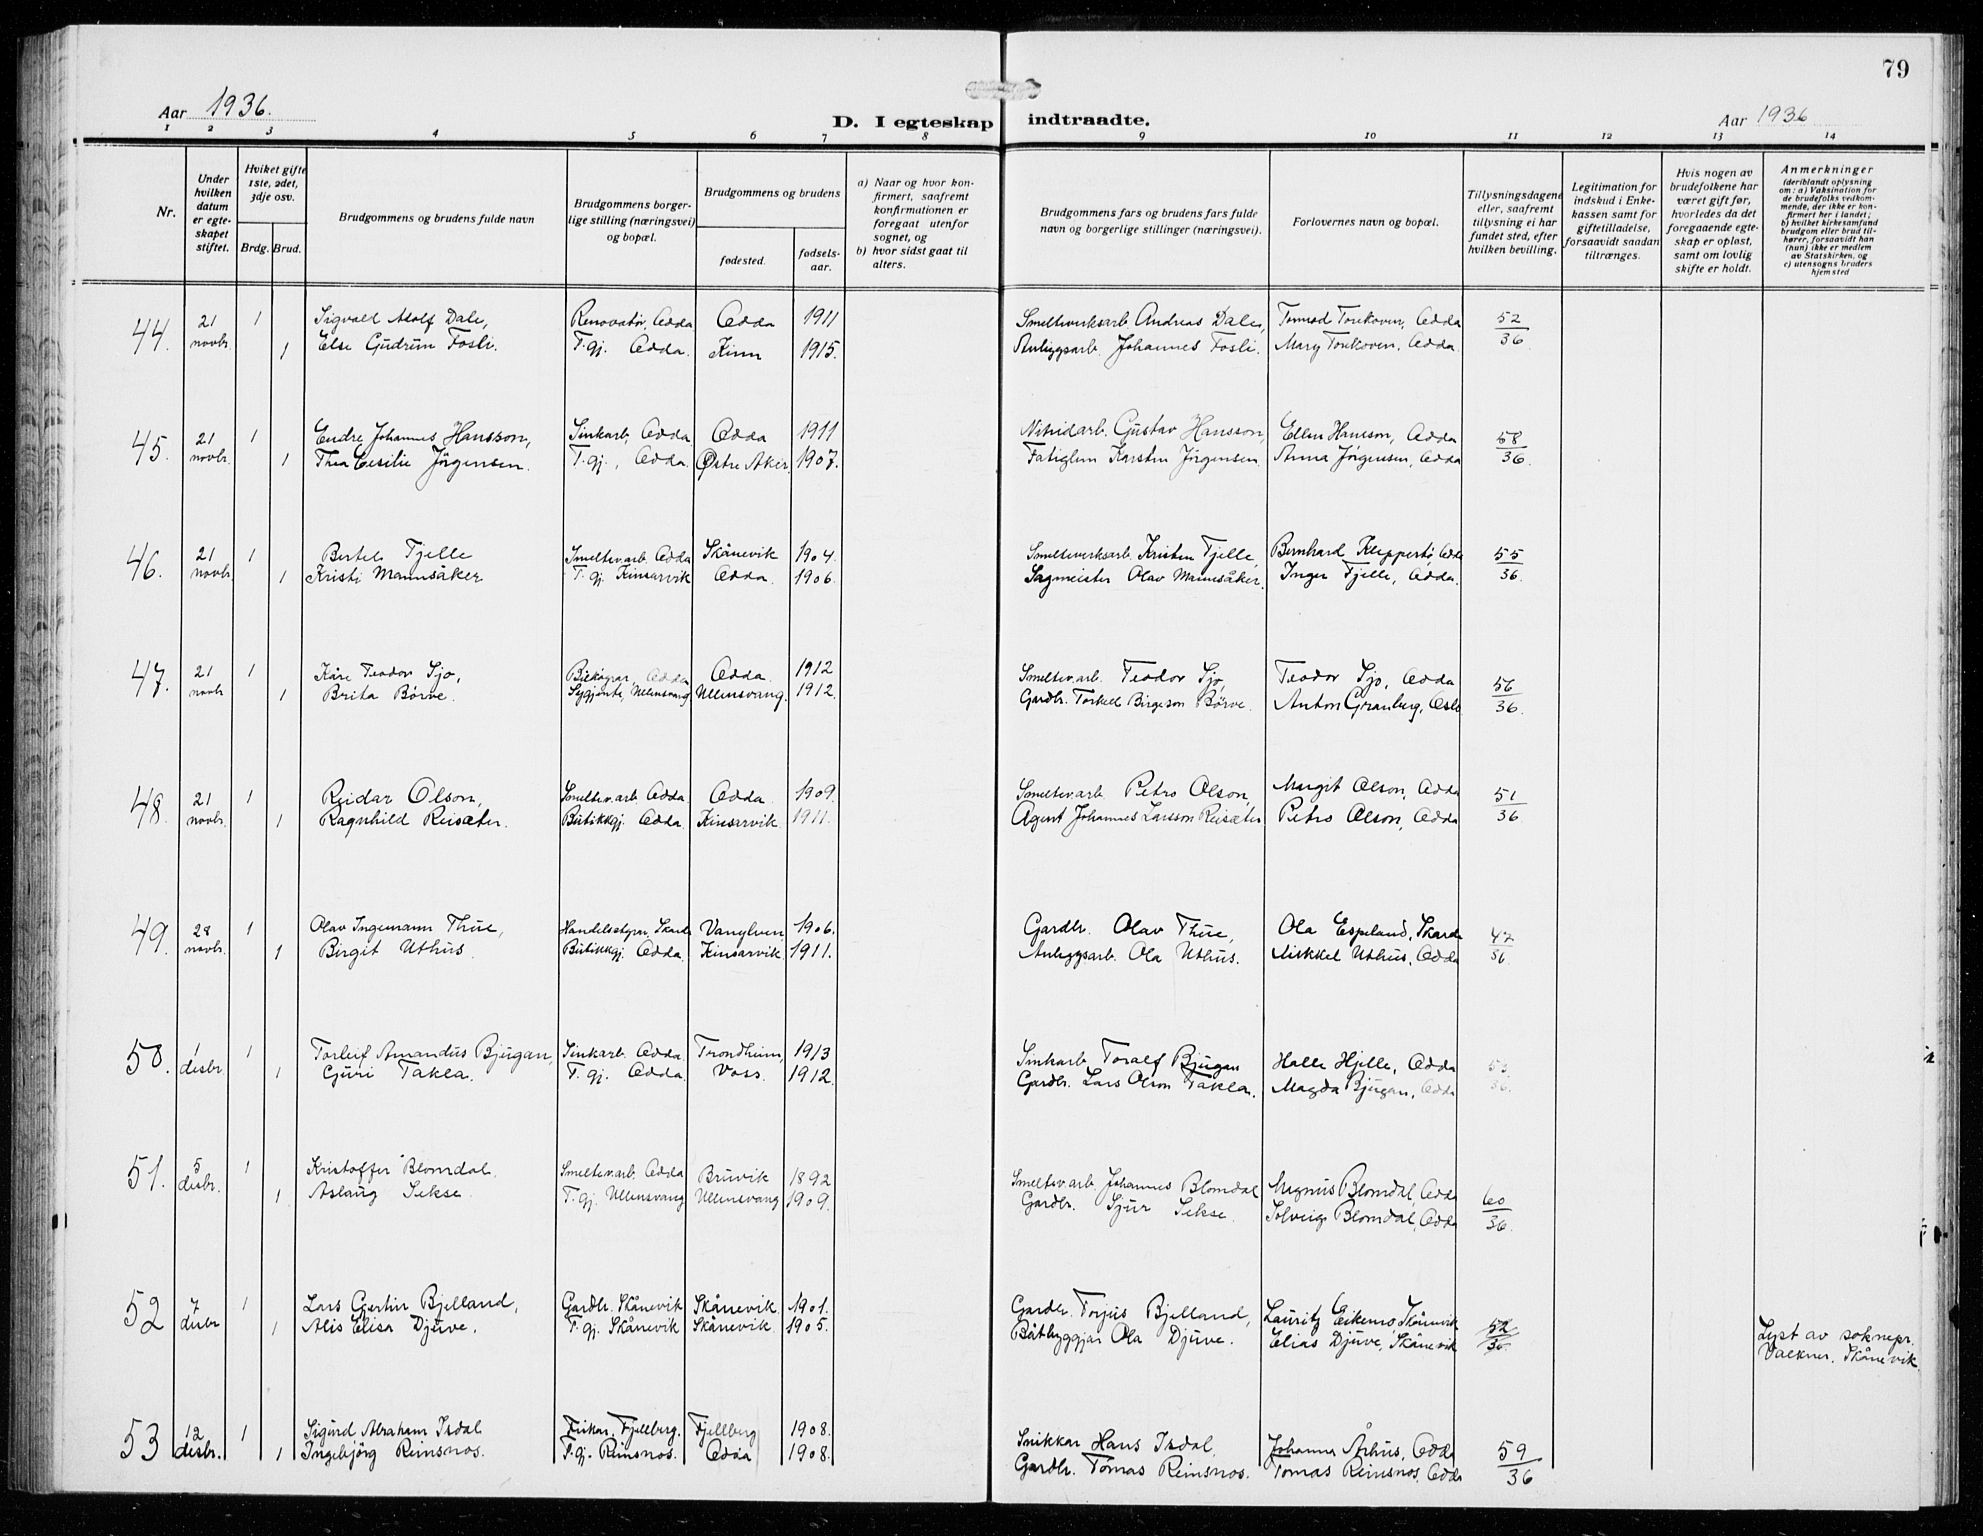 79
Aar 1936.
D. I egteskap indtraadte.
Aar 1936
1 2 3 4 5 6 7 8 9 10 11 12 13 14
Nr.
Under hvilken datum er egteskapet stiftet.
Hvilket gifte 1ste, 2det, 3dje osv.
Brdg. Brud.
Brudgommens og brudens fulde navn
Brudgommens borgerlige stilling (næringsvei) og bopæl.
Brudgommens og brudens
fødested.
fødselsaar.
a) Naar og hvor konfirmert, saafremt konfirmationen er foregaat utenfor sognet, og
b) hvor sidst gaat til alters.
Brudgommens fars og brudens fars fulde navn og borgerlige stillinger (næringsvei).
Forlovernes navn og bopæl.
Tillysningsdagene eller, saafremt tillysning ei har fundet sted, efter hvilken bevilling.
Legitimation for indskud i Enkekassen samt for giftetilladelse, forsaavidt saadan tiltrænges.
Hvis nogen av brudefolkene har været gift før, hvorledes da det foregaaende egteskap er opløst, samt om lovlig skifte er holdt.
Anmerkninger (deriblandt oplysning om: a) Vaksination for de brudefolks vedkommende, der ikke er konfirmert her i landet; b) hvilket kirkesamfund brudgom eller brud tilhører, forsaavidt han (hun) ikke er medlem av Statskirken, og c) utensogns bruders hjemsted
44. 21 novbr. 1 Sigvald Adolf Dale, Renovatør, Odda Odda 1911 Smelteverksarb. Andreas Dale, Odda 52
1 Else Gudrun Fosli. T.gj. Odda. Kinn 1915. Anliggsarb. Johannes Fosli. Mary Odda. 36.
45. 21 novbr. 1 Endre Johannes Hansson, Sinkarb. Odda Odda 1911 Nitridarb. Gustav Hansson, Ellen Hansson, Odda 58
1 Thea Cesilie Jörgensen. T.gj., Odda. Østre Aker 1907. Karsten Jörgensen. Anna Jörgensen, Odda 36.
46. 21 novbr. 1 Bertel Fjelle Smeltev.arb. Odda Skånevik 1904. Smelteverksarb. Kristen Fjelle, Bernhard Kleppestø, Odda 55
1 Kristi Mannsåker T.gj. Kinsarvik Odda. 1906. Sagmeister Olav Mannsåker. Inger Fjelle, Odda. 36.
47. 21 novbr 1 Kåre Teodor Sjo, Odda Odda. 1912 Smeltev.arb. Teodor Sjo, Teodor Sjo, Odda 56
1 Brita Börve. Sygjente, Ullensvang Ullensvang. 1912. Gardbr. Torkell Birgeson Börve. Anton Granberg, Oslo 36.
48. 21 novbr. 1 Reidar Olson, Smeltev.arb. Odda. Odda. 1909. Smeltev.arb. Petro Olson, Margit Olson, Odda 51
1 Ragnhild Reisæter. Butikkgj. Odda. Kinsarvik. 1911. Agent Johannes Larsson Reisæter Petro Olson, Odda 36.
49. 28 novbr. 1 Olav Ingemann Thue, Skarde Vanylven 1906. Gardbr. Olav Thue, Ola Espeland, Skarde 47
1 Birgit Uthus. Butikkgj. Odda. Kinsarvik 1911. Anleggsarb. Ola Uthus. Mikkel Uthus, Odda 36.
50. 1 desbr 1 Torleif Amandus Bjugan, Sinkarb. Odda. Trondheim, 1913 Sinkarb. Toralf Bjugan Halle Hjelle, Odda 53
1 Guri Takla. T.gj. Odda. Voss. 1912. Gardbr. Lars Olson Takla. Magda Bjugan, Odda 36.
51. 5 desbr. 1 Kristoffer Blomdal. Smeltev.arb. Odda Bruvik 1892 Smeltev.arb. Johannes Blomdal Magnus Blomdal, Odda 60
1 Aslaug Sekse. T.gj. Ullensvang Ullensvang 1909. Gardbr. Sjur Sekse. Solveig Blomdal, Odda 36.
52 7 desbr 1 Lars Gertin Bjelland, Gardbr. Skånevik Skånevik 1901. Gardbr. Torjus Bjelland, Lauritz Eikemo, Skånevik 52
1 Alis Elisa Djuve. T.gj. Skånevik Skånevik. 1905. Båtbyggjar Ola Djuve. Elias Djuve, Skånevik 36.
Lyst av soknepr. Valkner. Skånevik.
53 12 desbr. 1 Sigurd Abraham Isdal Fjellberg. Fjellberg 1908. Snikkar Hans Isdal. Johanna Århus, Odda 59
1 Ingebjörg Reinsnos. T.gj. Reinsnos. Odda 1908. Gardbr. Tomas Reinsnos. Tomas Reinsnos. Odda 36